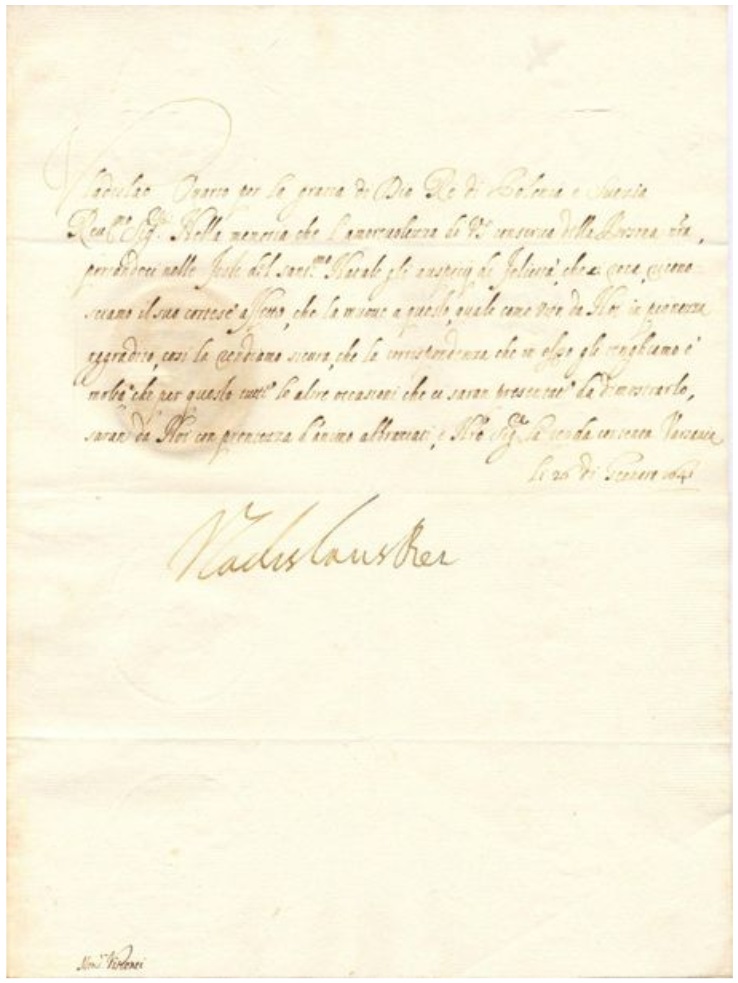 Vladislao Quarto per la gratia di Dio Re di Polonia e Suetia
Reu.mo Sig.r Nella memoria che l'amoreuolezza di VS conserua della Persona nra,
nelle feste del sant.mo Natale gli auspicij di felicità, che ricono-
sciamo il suo cortese affetto, che la muoue a questo, quale come vien da Noi in pienezza
aggradito, così la rendiamo sicura, che la corrispondenza che in esso gli tenghiamo è
molta che per questo tutte le altre occasioni che ci saran presentate da dimostrarlo,
saran da Noi con prontezza d'animo abbracciati, e Nro Sig.re la renda contenta Varsauia
li 26 di Genaro 1641
Vladislaus Rex
Mons.r